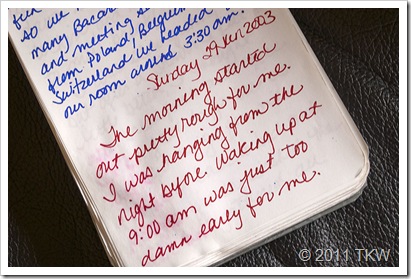 so we
many Bacard
and meeting
from Poland, Belgium
Switzerland we headed
our room around 3:30am.
Sunday 29 Jun 2003
The morning started
out pretty rough for me.
I was hanging from the
night before. Waking up at
9:00 am was just too
damn early for me.
© 2011 TKW